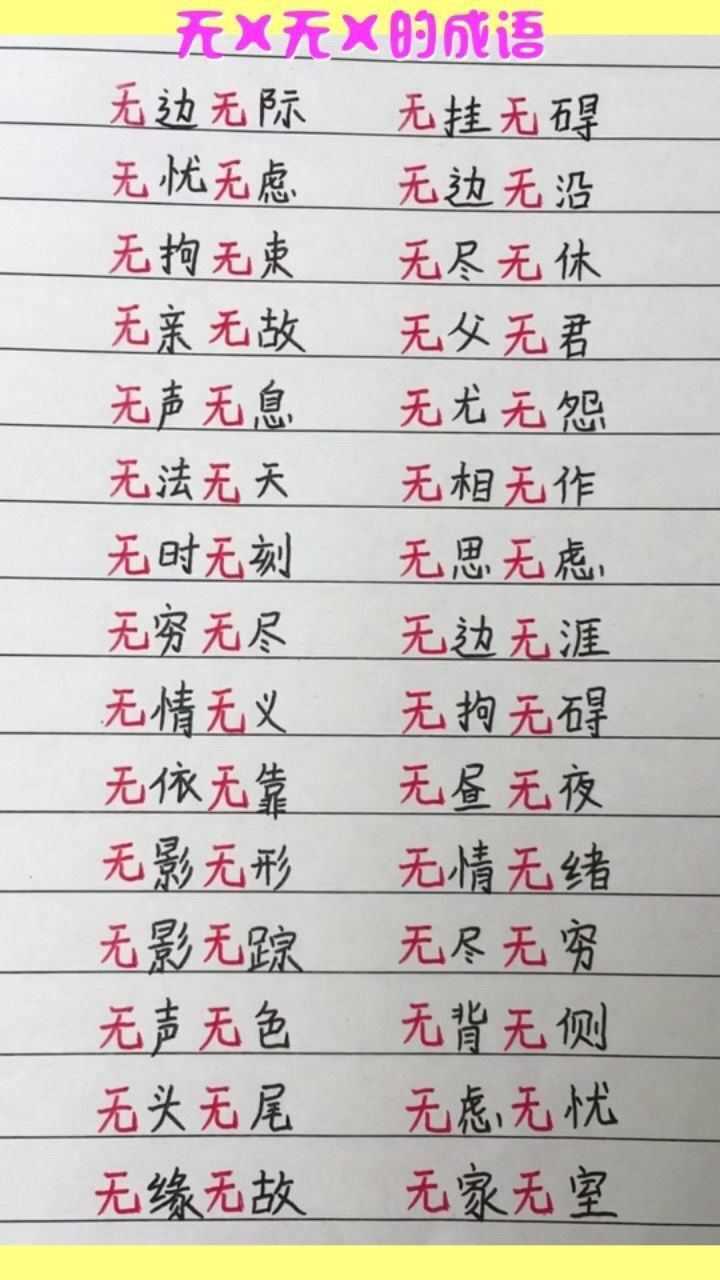 无X无X的成语
无边无际 无挂无碍
无忧无虑 无边无沿
无拘无束 无尽无休
无亲无故 无父无君
无声无息 无尤无怨
无法无天 无相无作
无时无刻 无思无虑
无穷无尽 无边无涯
无情无义 无拘无碍
无依无靠 无昼无夜
无影无形 无情无绪
无影无踪 无尽无穷
无声无色 无背无侧
无头无尾 无虑无忧
无缘无故 无家无室